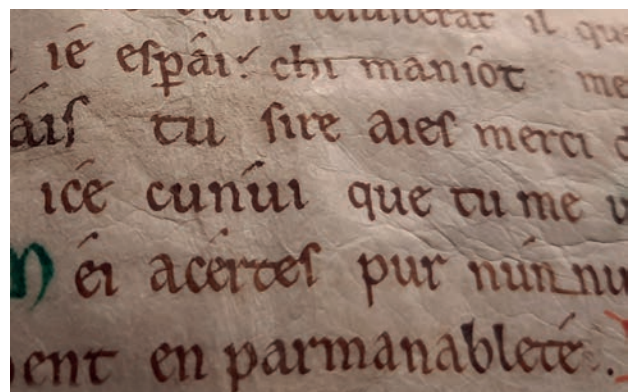 il que
ié eſꝑái· chi maniót me
áiſ tu ſire aieſ merci
icé cunúi que tu me
éi acérteſ pur nún nu
ent en parmanableté.